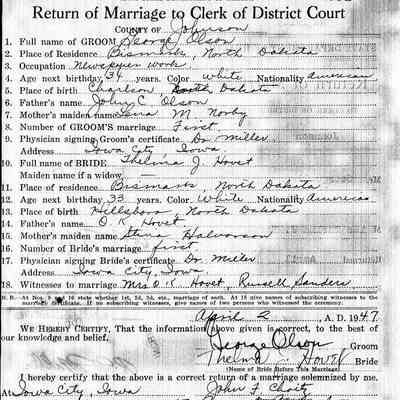 Return of Marriage to Clerk of District Court
COUNTY OF Johnson
1. Full name of GROOM George Olson
2. Place of Residence Bismarck, North Dakota
3. Occupation Newspaper work
4. Age next birthday 34 years. Color White Nationality American
5. Place of birth Charlson North Dakota
6. Father's name John C. Olson
7. Mother's maiden name Lena M. Norby
8. Number of GROOM'S marriage First
9. Physician signing Groom's certificate Dr. Miller
Address Iowa City, Iowa
10. Full name of BRIDE Thelma J. Hovet
Maiden name if a widow,
11. Place of residence Bismarck, North Dakota
12. Age next birthday 33 years. Color White Nationality American
13. Place of birth Hillsboro North Dakota
14. Father's name O. K. Hovet
15. Mother's maiden name Halvorson
16. Number of Bride's marriage first
17. Physician signing Bride's certificate Dr. Miller
Address Iowa City, Iowa
18. Witnesses to marriage Mrs O. K. Hovet, Russell Sanders
N. B.—At Nos. 8 16 state whether 1st, 2d, 3d, etc., marriage of each. At 18 give names of subscribing witnesses to the
marriage certificate. If no subscribing witnesses, give names of two persons who witnessed the ceremony.
April 2 A. D. 1947
WE HEREBY CERTIFY, That the information above given is correct, to the best of
our knowledge and belief.
George Olson Groom
Thelma J. Hovet Bride
(Name of Bride Before This Marriage)
I hereby certify that the above is a correct return of a marriage solemnized by me.
At Iowa City, Iowa John F.